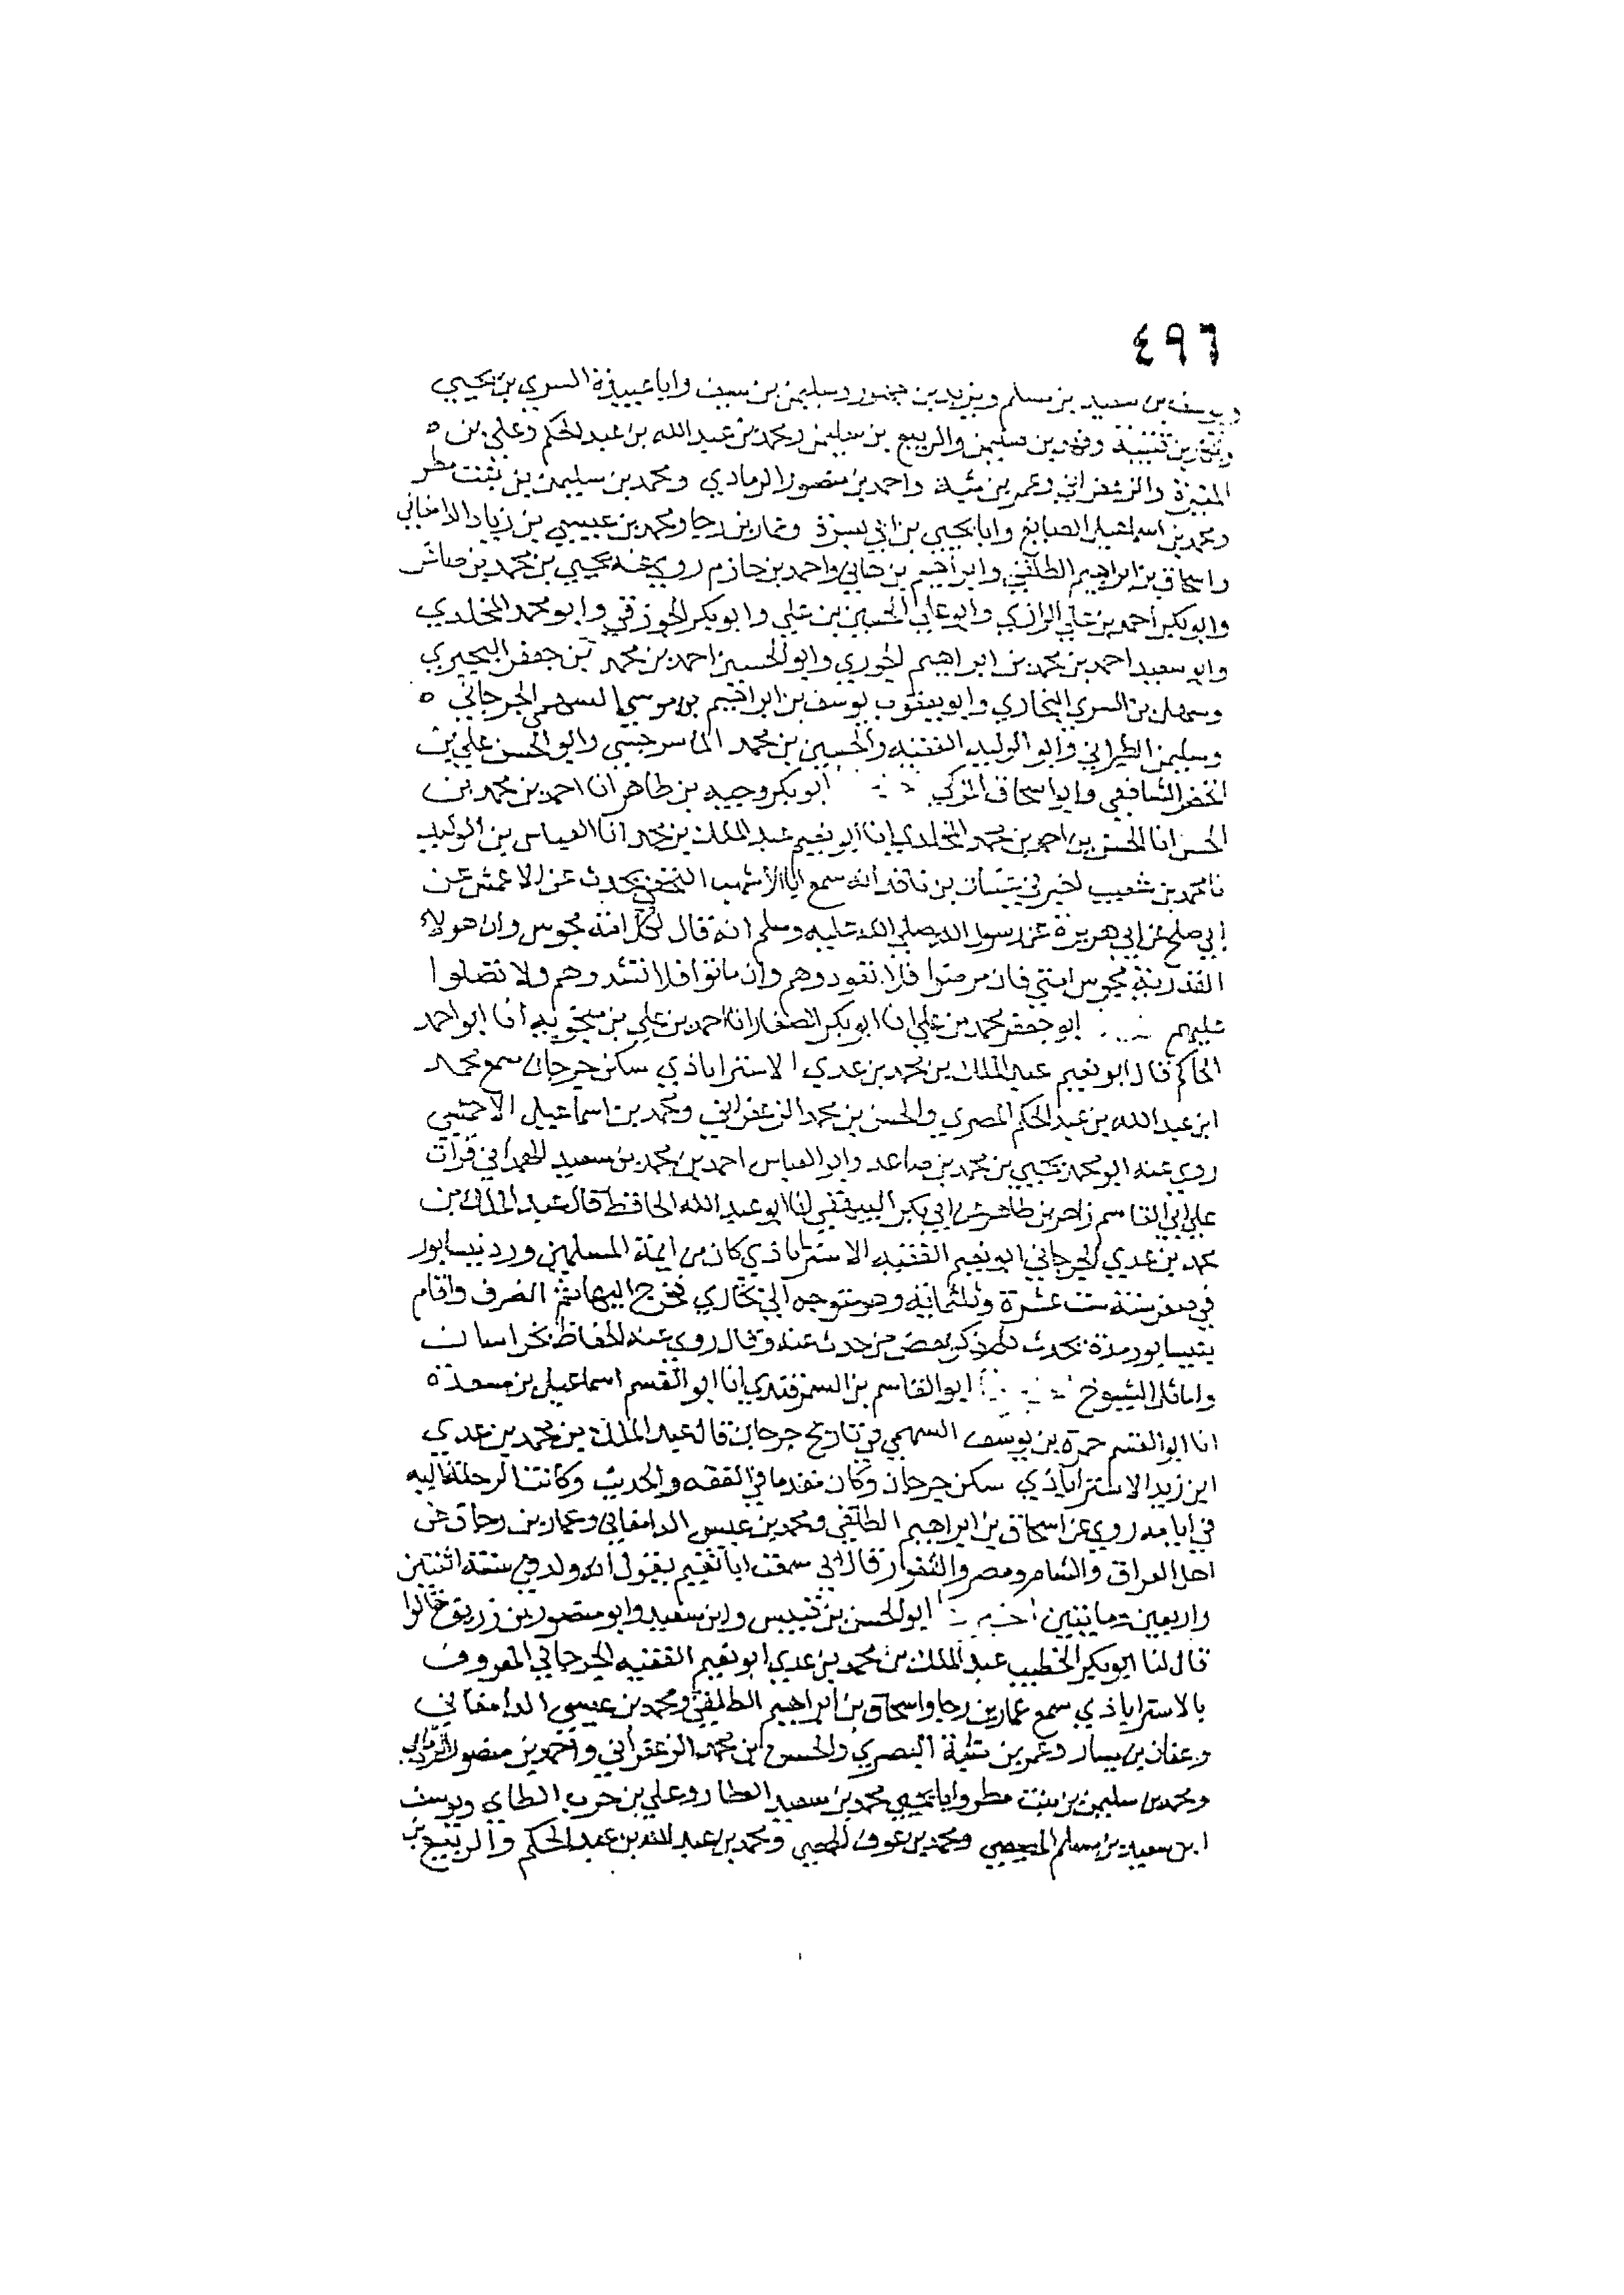 ٤٩٦
ويوسف بن سعيد بن مسلم ويزيد بن وسليمن بن سيف وابا عبيدة السري بن يحيى
بن قتيبة وفهد بن سليمن والربيع بن سليمن ومحمد بن عبد الله بن عبد الحكم وعلي بن ه
المغيرة والزعفراني وعمر بن شبة واحمد بن منصور الرمادي ومحمد بن سليمن بن بنت مطر
ومحمد بن اسماعيل الصايغ وابا يحيي بن ابي مسرة وعمار بن رجا ومحمد بن عيسي بن زياد الدامغاني
واسحاق بن ابراهيم الطلقي وابراهيم بن هاني واحمد بن حازم روى عنه يحيي بن محمد بن صاعد
وابو بكر احمد بن علي الرازي وابو علي الحسين بن علي وابو بكر الجوزقي وابو محمد المخلدي
وابو سعيد احمد بن محمد بن ابراهيم الجوري وابو الحسين احمد بن محمد بن جعفر البحيري
وسهل بن السري البخاري وابو يعقوب يوسف بن ابراهيم بن موسي السهمي الجرجاني ه
وسليمن الطبراني وابو الوليد الفقيه والحسين بن محمد الماسرجسي وابو الحسن علي بن
الخضر الشافعي وابو اسحاق المزكي ابو بكر وجيه بن طاهر انا احمد بن محمد بن
الحسن انا الحسن بن احمد بن محمد المخلدي انا ابو نعيم عبد الملك بن محمد انا العباس بن الوليد
نا محمد بن شعيب اخبرني بن ناقد انه سمع ابا الاشهب النخعي يحدث عن الاعمش عن
ابي صلح عن ابي هريرة عن رسول الله صلى الله عليه وسلم انه قال لكل امة مجوس وان هولاء
القدرية مجوس امتي فان مرضوا فلا تعودوهم وان ماتوا فلا تشهدوهم ولا تصلوا
عليهم ابو جعفر محمد بن علي انا ابو بكر الصفار انا احمد بن علي بن منجويه انا ابو احمد
الحاكم قال ابو نعيم عبد الملك بن محمد بن عدي الاستراباذي سكن جرجان سمع محمد
ابن عبد الله بن عبد الحكم المصري والحسن بن محمد الزعفراني ومحمد بن اسماعيل الاحمسي
روى عنه ابو محمد يحيي بن محمد بن صاعد وابو العباس احمد بن محمد بن سعيد الهمداني قرات
علي ابي القاسم زاهر بن طاهر عن ابي بكر البيهقي انا ابو عبد الله الحافظ قال عبد الملك بن
محمد بن عدي الجرجاني ابو نعيم الفقيه الاستراباذي كان من ايمة المسلمين ورد نيسابور
في صفر سنة ست عشرة وثلثماية وهو متوجه الي بخاري فخرج اليها ثم انصرف واقام
بنيسابور مدة يحدث ثم ذكر بعض من حدث عنه وقال روى عنه الحفاظ بخراسان
واماثل الشيوخ ابو القاسم بن السمرقندي انا ابو القسم اسماعيل بن مسعدة
انا ابو القسم حمزة بن يوسف السهمي في تاريخ جرجان قال عبد الملك بن محمد بن عدي
ابن زيد الاستراباذي سكن جرجان وكان مقدما في الفقه والحديث وكانت الرحلة اليه
في ايامه روي عن اسحاق بن ابراهيم الطلقي ومحمد بن عيسى الدامغاني وعمار بن رجا وعن
اهل العراق والشام ومصر والثغور قال ابي سمعت ابا نعيم يقول انه ولد في سنة اثنتين
واربعين ومايتين ابو الحسن بن قبيس وابن سعيد وابو منصور بن زريق قالوا
قال لنا ابو بكر الخطيب عبد الملك بن محمد بن عدي ابو نعيم الفقيه الجرجاني المعروف
بالاستراباذي سمع عمار بن رجا واسحاق بن ابراهيم الطلقي ومحمد بن عيسى الدامغاني
وعفان بن يسار وعمر بن شبة البصري والحسن بن محمد الزعفراني واحمد بن منصور الرمادي
ومحمد بن سليمن بن بنت مطر وابا يحيي محمد بن سعيد العطار وعلي بن حرب الطاي ويوسف
ابن سعيد بن مسلم المصيصي ومحمد بن عوف الحمصي ومحمد بن عبد الله بن عبد الحكم والربيع بن